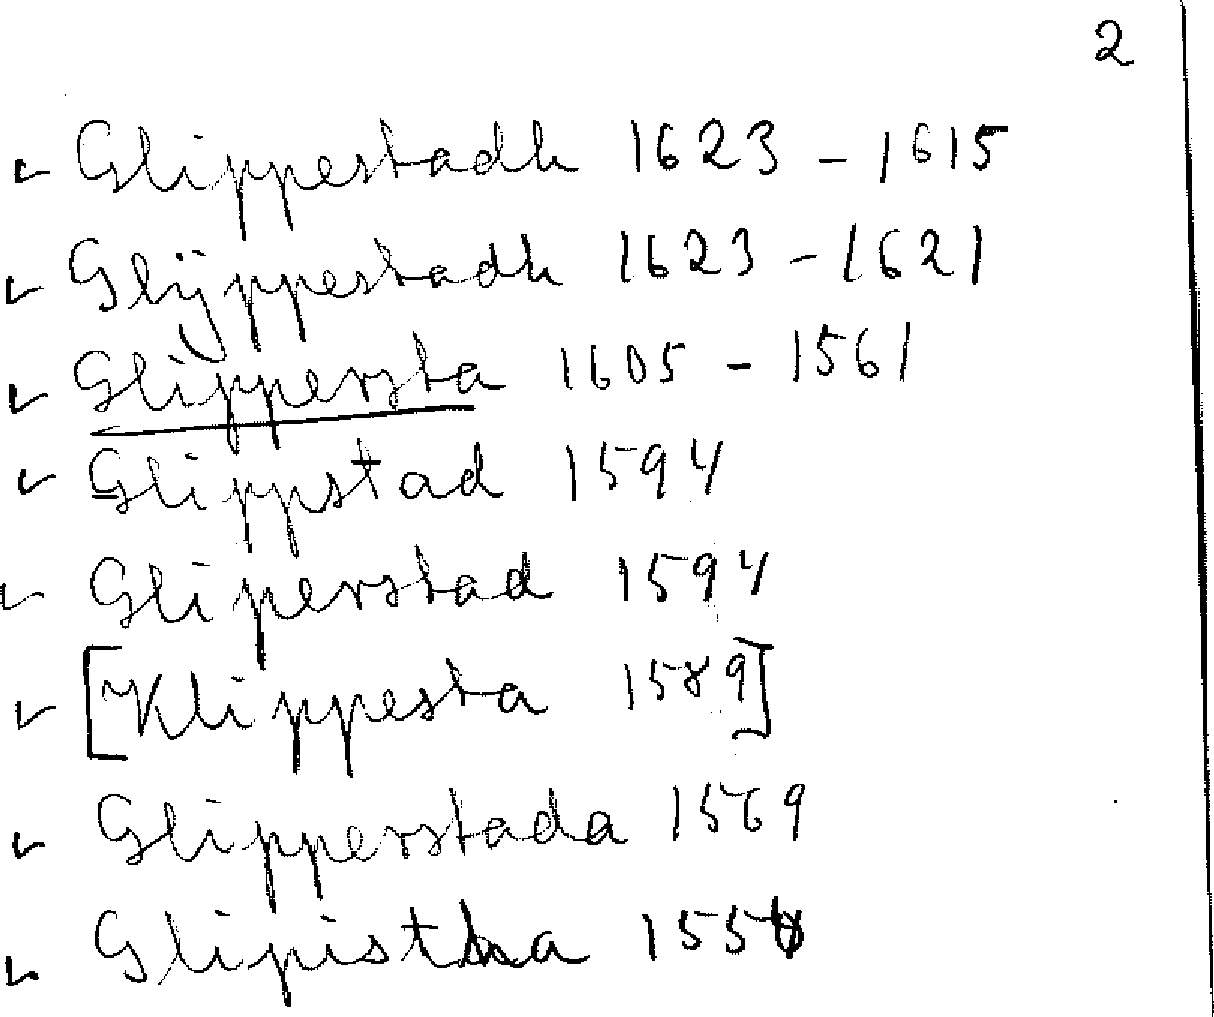 2
Glippestadh 1623 - 1615
Glijppestadh 1623 - 1621
Glippersta 1605 - 1561
Glippstad 1594
Gliperstad 1594
[Klippesta 1589]
Glipperstada 1569